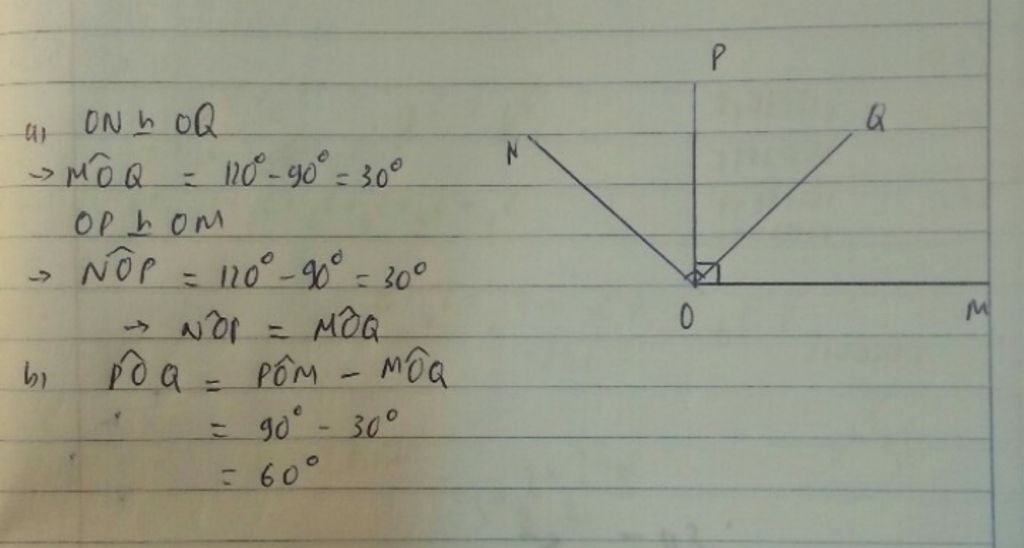 a) ON ⊥ OQ
→ MÔQ = 120° - 90° = 30°
OP ⊥ OM
→ NÔP = 120° - 90° = 30°
→ NÔP = MÔQ
b) PÔQ = PÔM - MÔQ
= 90° - 30°
= 60°
P
N
Q
O
M